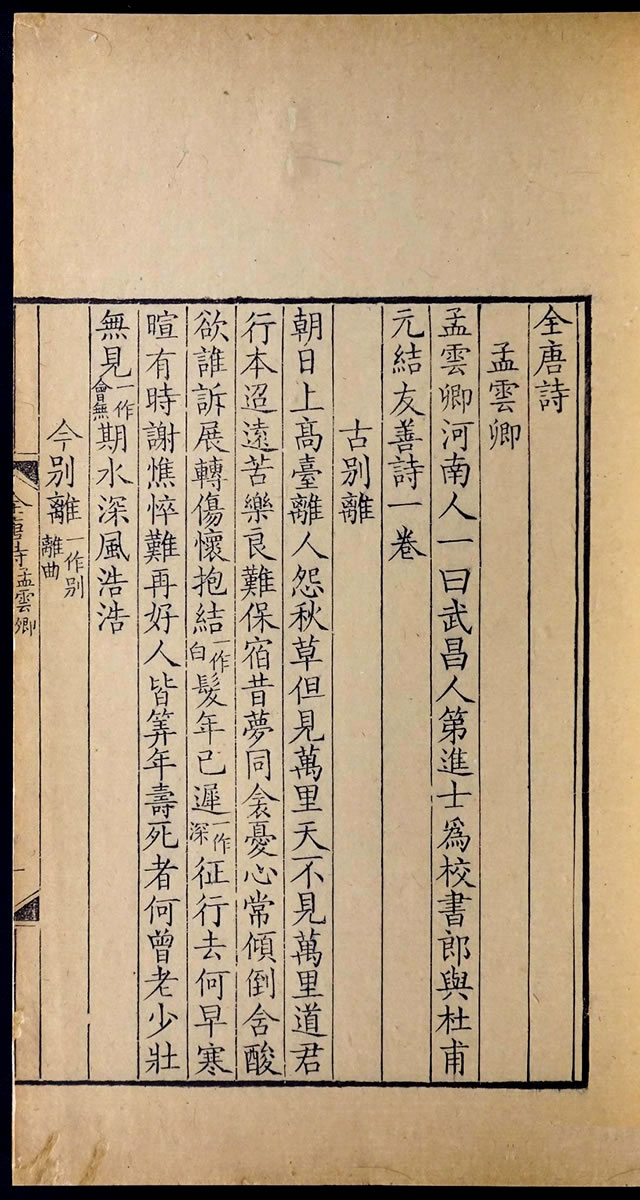 全唐詩
孟雲卿
孟雲卿河南人一曰武昌人第進士爲校書郎與杜甫
元結友善詩一卷
古别離
朝日上高臺離人怨秋草但見萬里天不見萬里道君
行本迢遠苦樂良難保宿昔夢同衾憂心常傾倒含酸
欲誰訴展轉傷懷抱結一作白髮年已遲一作深征行去何早寒
暄有時謝憔悴難再好人皆筭年壽死者何曾老少壯
無見一作會無期水深風浩浩
今别離一作别離曲
全唐詩孟雲卿
一